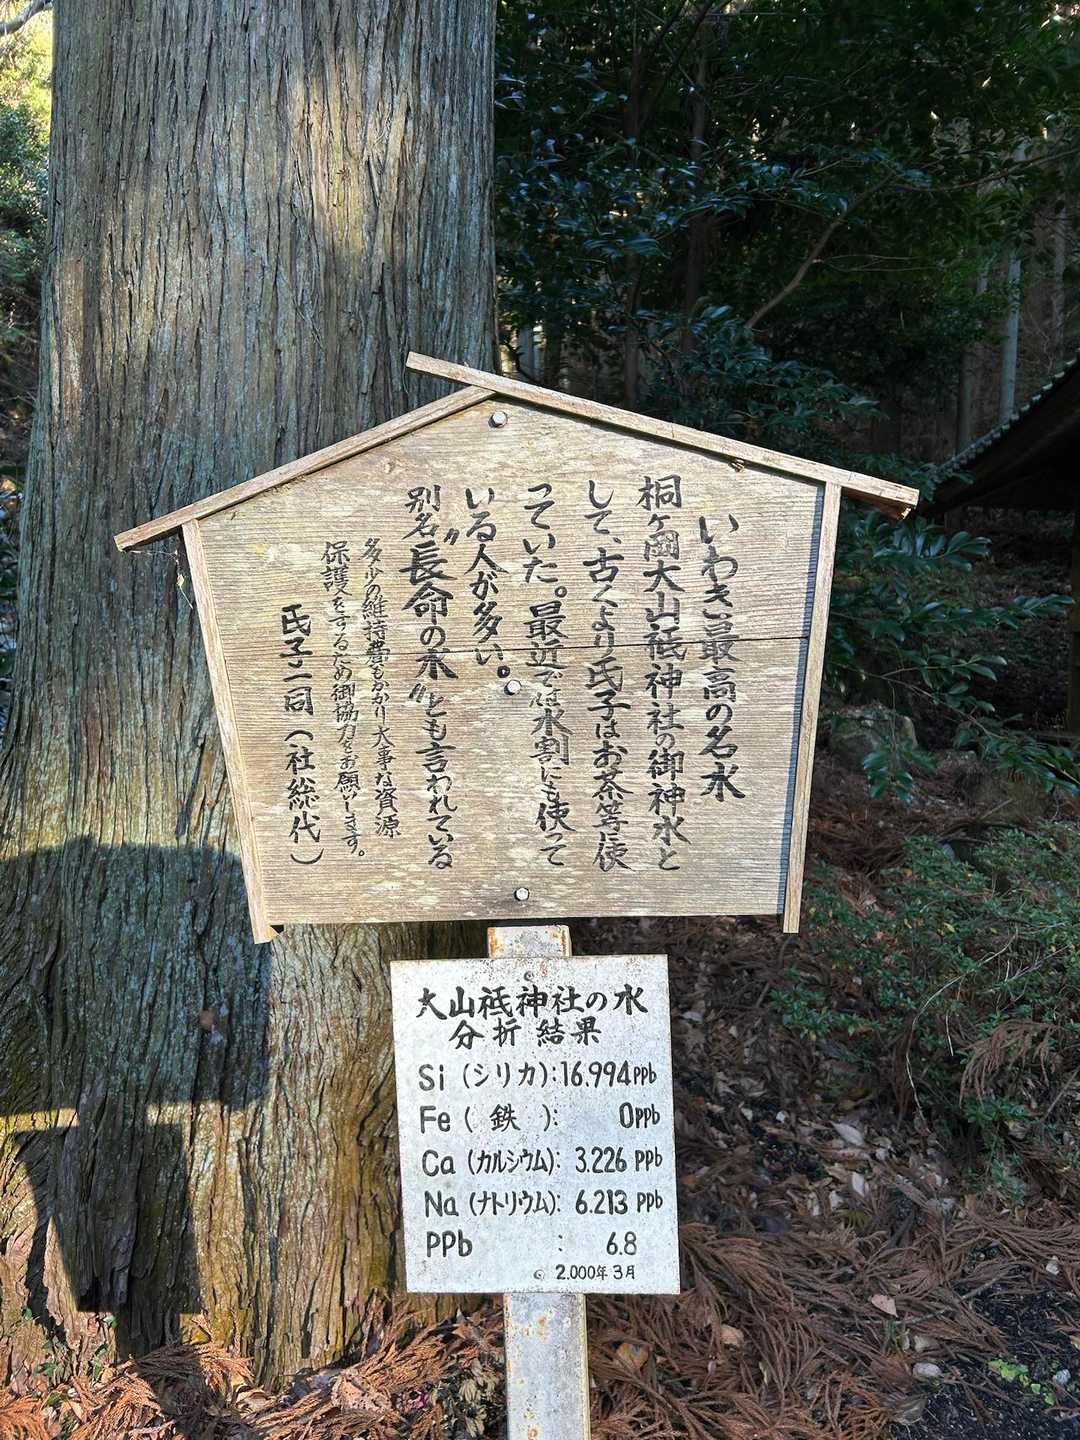 いわき最高の名水
桐ヶ岡大山祗神社の御神水と
して、古くより氏子はお茶等に使
っていた。最近では水割にも使って
いる人が多い。
別名〝長命の水〟とも言われている
多少の維持費もかかり大事な資源
保護をするため御協力をお願いします。
氏子一同(社総代)
大山祗神社の水
分折結果
Si(シリカ):16.994PPb
Fe(鉄):0PPb
Ca(カルシウム):3.226PPb
Na(ナトリウム):6.213PPb
PPb:6.8
2.000年3月